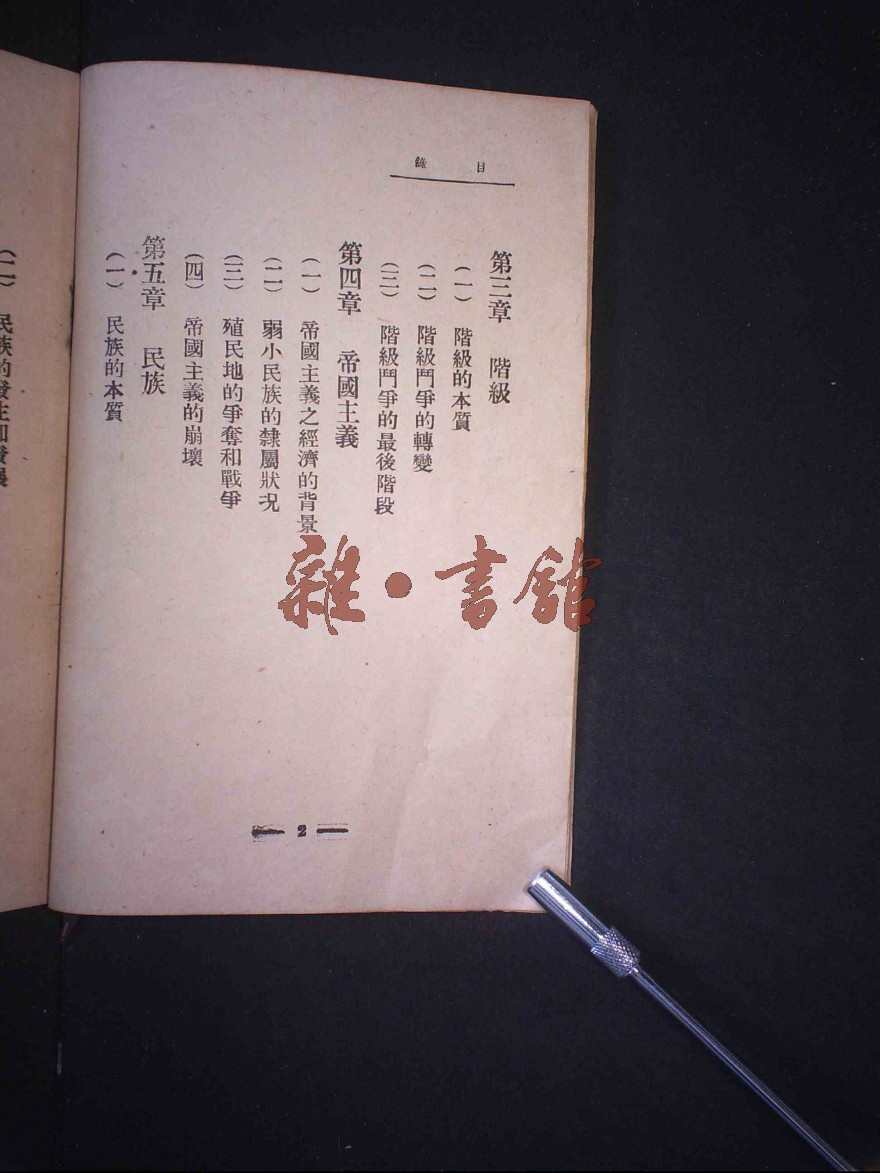 目錄
第三章 階級
(一) 階級的本質
(二) 階級鬥爭的轉變
(三) 階級鬥爭的最後階段
第四章 帝國主義
(一) 帝國主義之經濟的背景
(二) 弱小民族的隸屬狀況
(三) 殖民地的爭奪和戰爭
(四) 帝國主義的崩壞
第五章 民族
(一) 民族的本質
2
(二) 民族的發生和發展
雜·書館